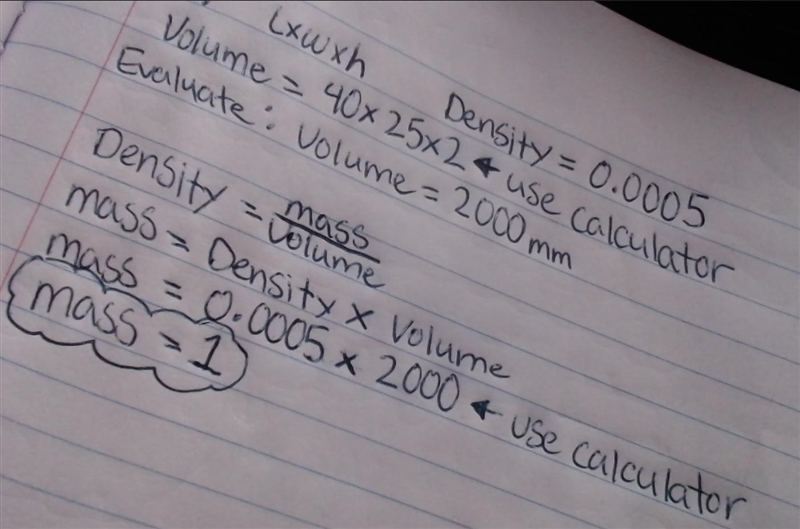 LxWxh
Volume = 40x25x2 ← use calculator
Density = 0.0005
Evaluate: Volume = 2000mm
Density = mass/Volume
mass = Density x Volume
mass = 0.0005 x 2000 ← use calculator
mass = 1